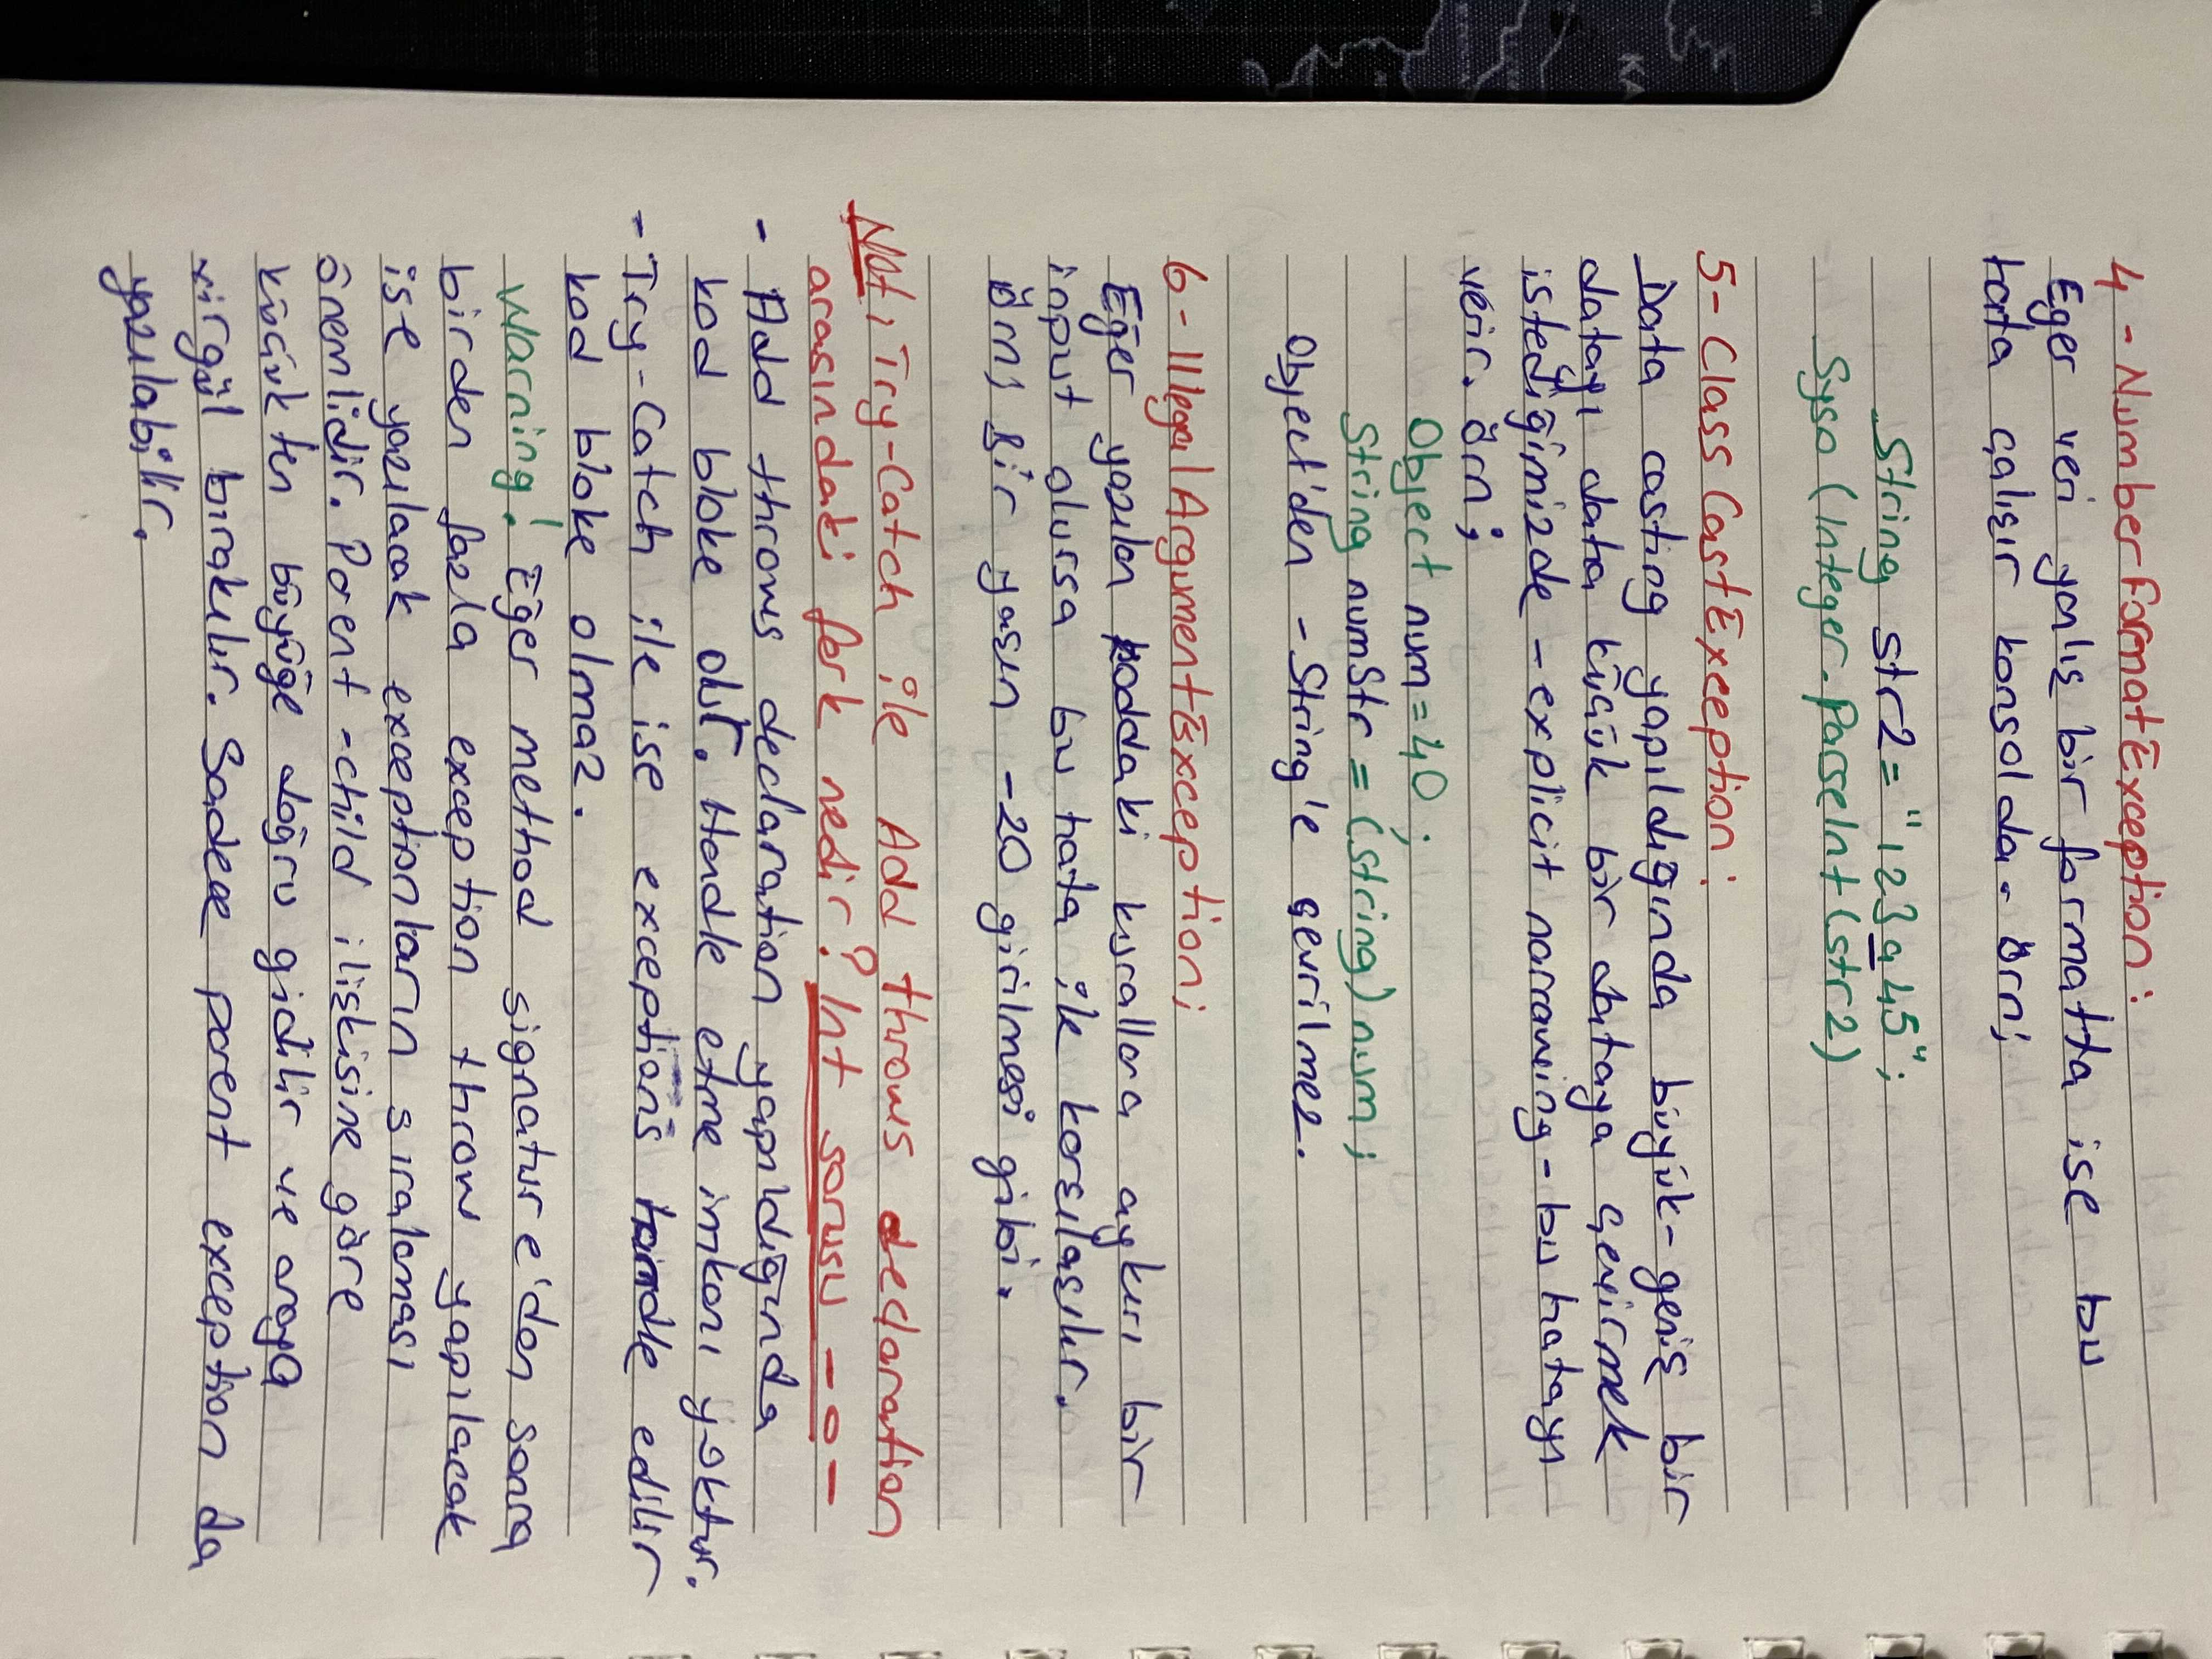 4 - NumberFormatException:
Eger veri yanlış bir formatta ise bu
hata çalışır konsolda. Örn;
String str2 = "123a45";
Syso (Integer.ParseInt (str2)
5- Class CastException:
Data casting yapıldığında büyük-geniş bir
datayı daha küçük bir dataya çevirmek
istediğimizde - explicit narraweing - bu hatayı
verir. örn;
Object num = 40 ;
String numStr = (String) num ;
Object'den - String'e çevrilmez.
6 - IllegalArgumentException;
Eğer yazılan koddaki kurallara aykırı bir
input olursa bu hata ile karşılaşılır.
Örn; Bir yaşın -20 girilmesi gibi.
Not; Try-Catch ile Add throws declaration
arasındaki fark nedir? Int sorusu -o-
- Add throws declaration yapıldığında
kod bloke olur. Handle etme imkanı yoktur.
- Try-Catch ile ise exceptions handle edilir
kod bloke olmaz.
Warning! Eğer method signature'den sonra
birden fazla exception throw yapılacak
ise yazılacak exceptionların sıralaması
önemlidir. Parent-child ilişkisine göre
küçükten büyüğe doğru gidilir ve araya
virgül bırakılır. Sadece parent exception da
yazılabilir.